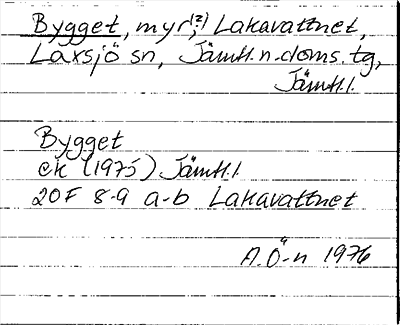 Bygget, myr,(2) Lakavattnet,
Laxsjö sn, Jämtl.n.doms.tg,
Jämtl.l.
Bygget
ek (1975) Jämtl.l
20F 8-9 a-b Lakavattnet
A.Ö-n 1976